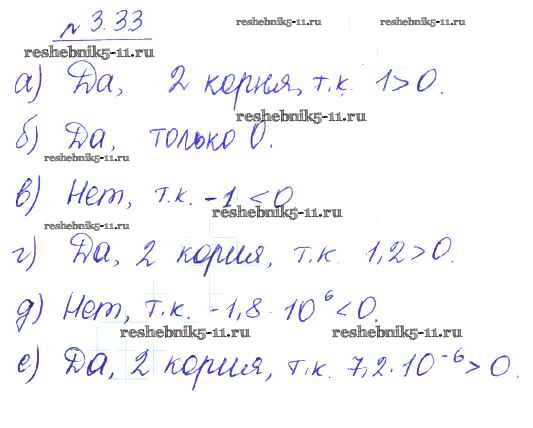 reshebnik5-11.ru reshebnik5-11.ru
№ 3.33
reshebnik5-11.ru
а) Да, 2 корня, т.к. 1>0.
reshebnik5-11.ru
б) Да, только 0.
reshebnik5-11.ru
в) Нет, т.к. -1 < 0
reshebnik5-11.ru
reshebnik5-11.ru
г) Да, 2 корня, т.к. 1,2>0.
д) Нет, т.к. -1,8·10⁶<0.
reshebnik5-11.ru reshebnik5-11.ru
е) Да, 2 корня, т.к. 7,2·10⁻⁶>0.